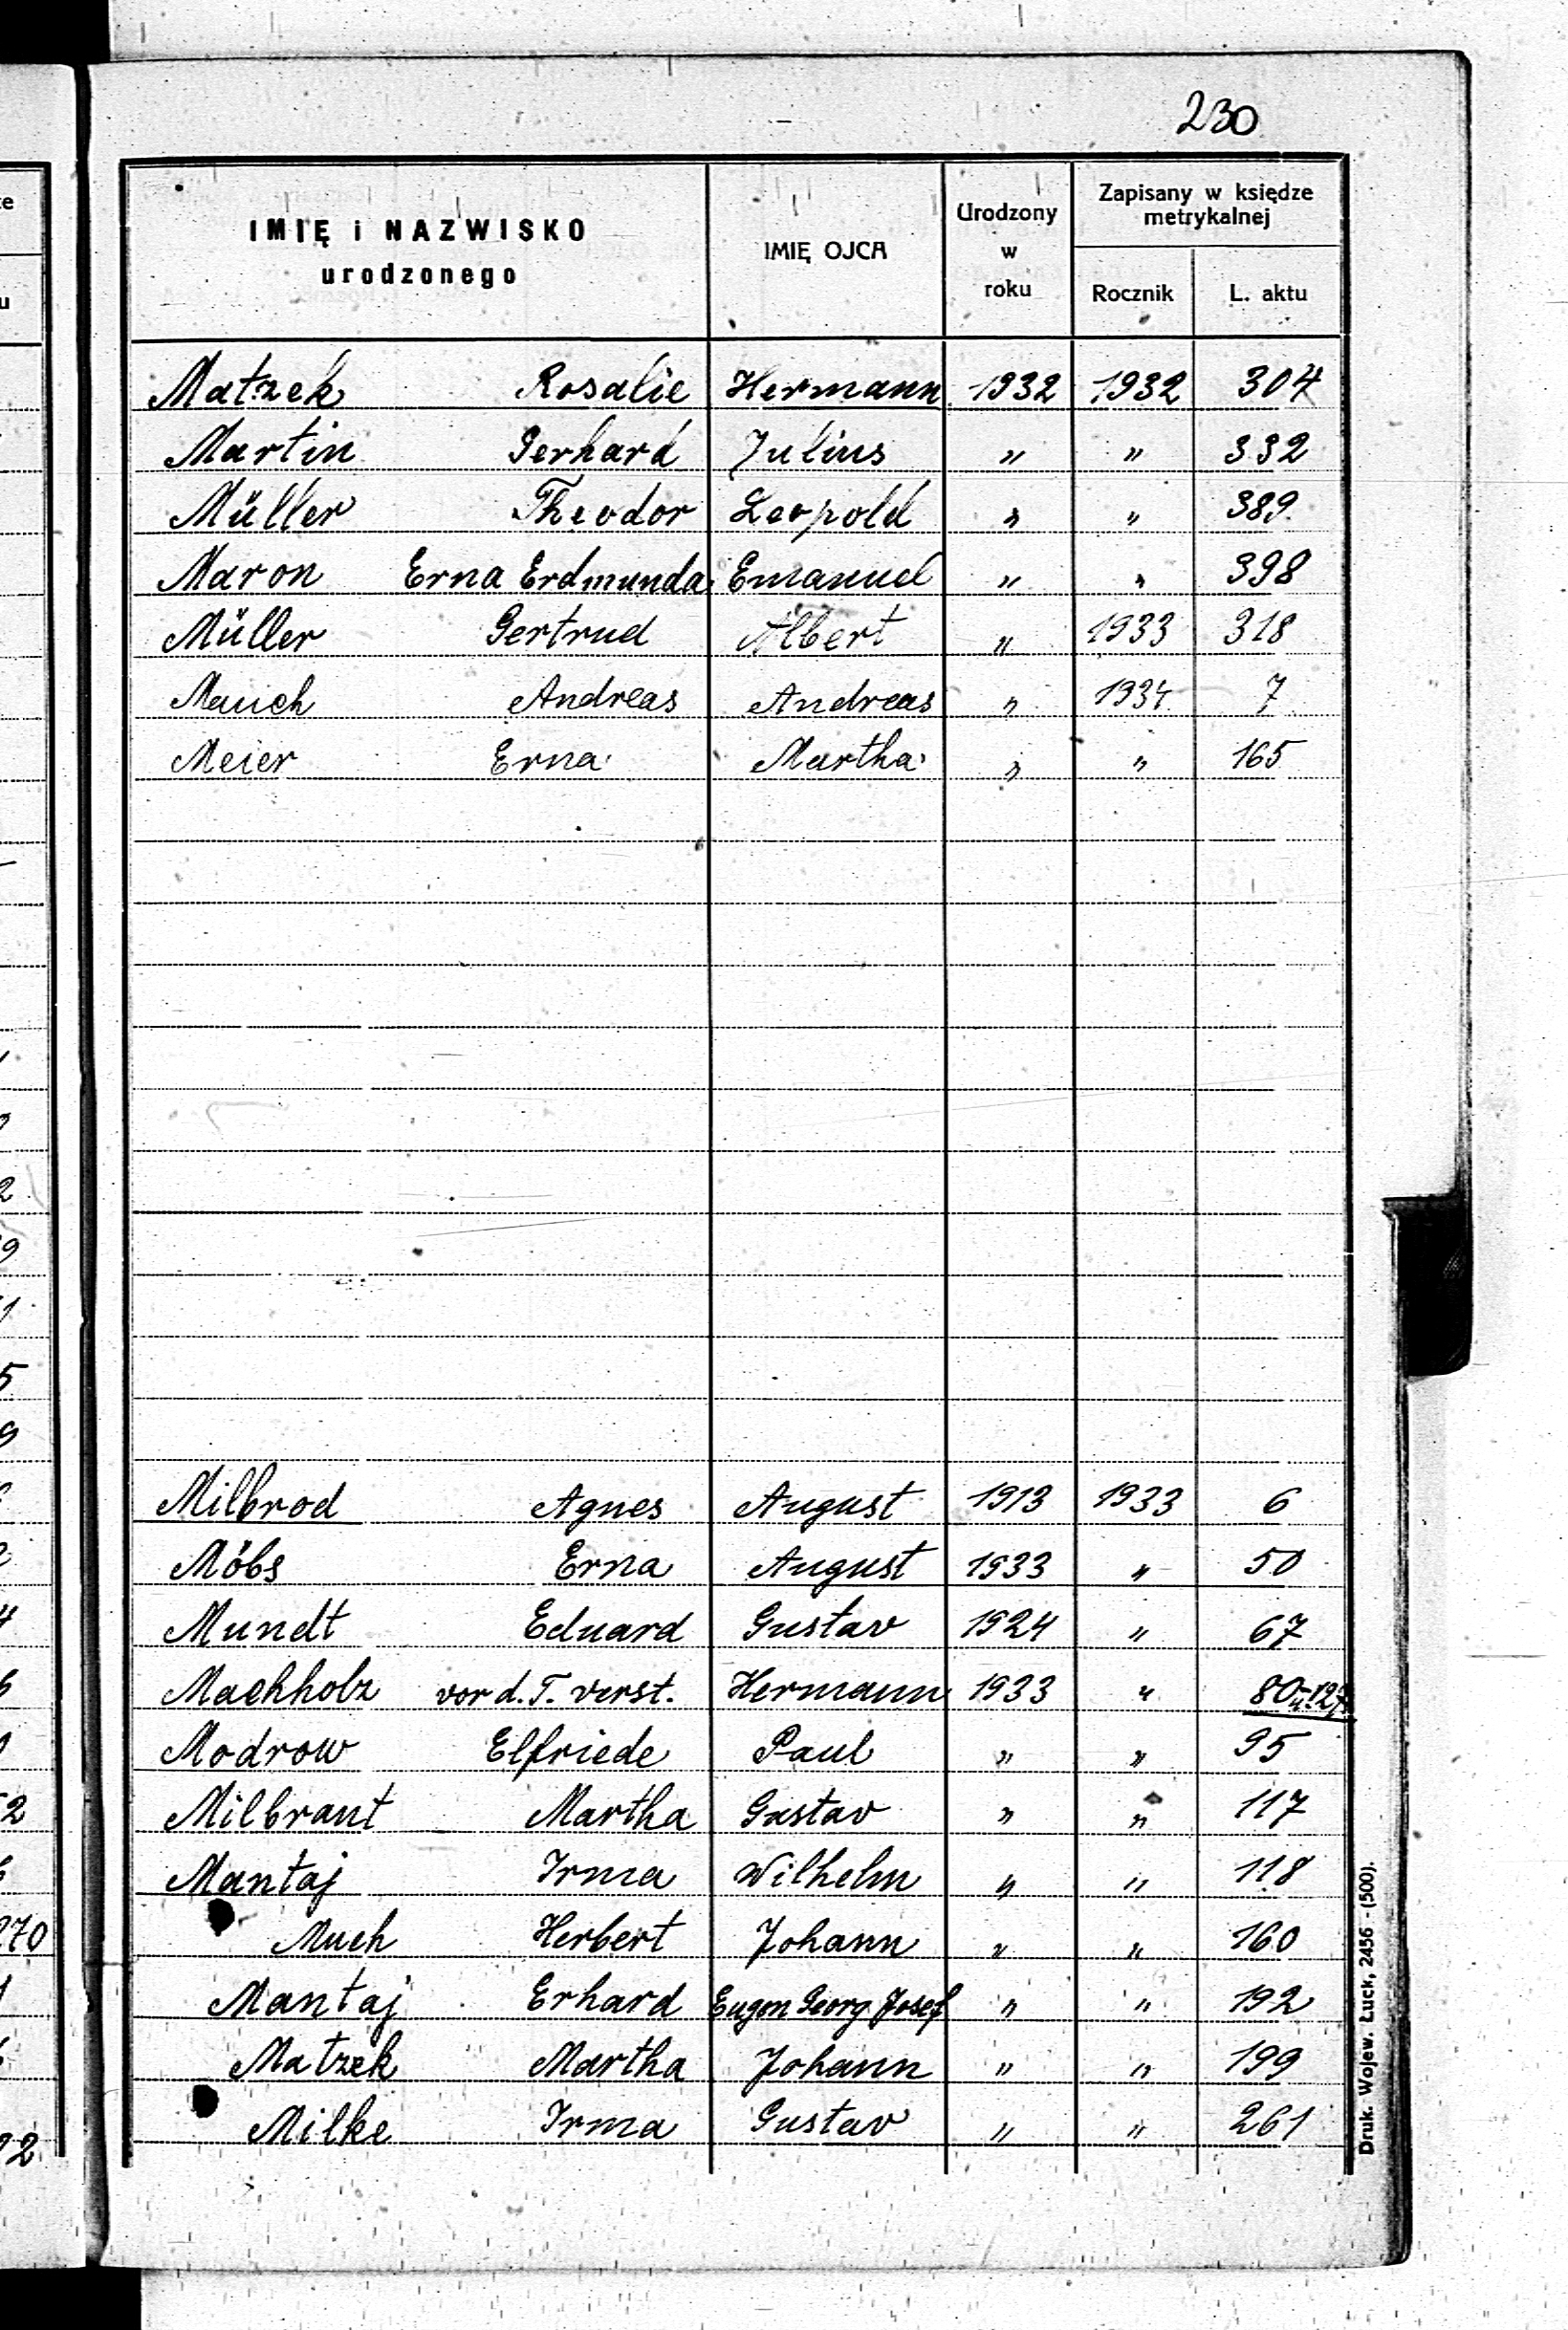 230
IMIĘ i NAZWISKO urodzonego IMIĘ OJCA Urodzony w roku Zapisany w księdze metrykalnej
Rocznik L. aktu
Matzek Rosalie Hermann 1932 1932 304
Martin Gerhard Julius " " 332
Müller Theodor Leopold " " 389
Maron Erna Erdmunda Emanuel " " 398
Müller Gertrud Albert " 1933 318
Mauch Andreas Andreas " 1934 7
Meier Erna Martha " " 165
Milbrod Agnes August 1913 1933 6
Möbs Erna August 1933 " 50
Mundt Eduard Gustav 1924 " 67
Machholz vor d. T. verst. Hermann 1933 " 80 u.
Modrow Elfriede Paul " " 95
Milbrant Martha Gustav " " 117
Mantaj Irma Wilhelm " " 118
Much Herbert Johann " " 160
Mantaj Erhard Eugen Georg Josef " " 192
Matzek Martha Johann " " 199
Milke Irma Gustav " " 261
Druk. Wojew. Łuck, 2456 - (500).